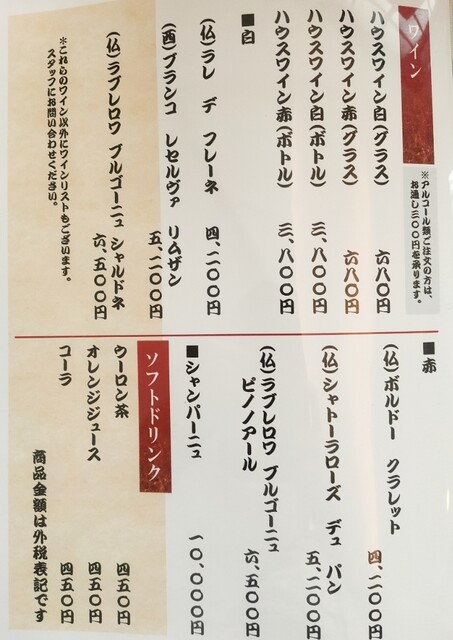 ワイン
※アルコール類ご注文の方は、
お通し三〇〇円を承ります。
ハウスワイン白(グラス) 六八〇円
ハウスワイン赤(グラス) 六八〇円
ハウスワイン白(ボトル) 三、八〇〇円
ハウスワイン赤(ボトル) 三、八〇〇円
■白
(仏)ラレ デ フレーネ 四、二〇〇円
(西)ブランコ レセルヴァ リムザン 五、二〇〇円
(仏)ラブレロワ ブルゴーニュ シャルドネ 六、五〇〇円
※これらのワイン以外にワインリストもございます。
スタッフにお問い合わせください。
■赤
(仏)ボルドー クラレット 四、二〇〇円
(仏)シャトーラローズ デュ パン 五、二〇〇円
(仏)ラブレロワ ブルゴーニュ
ピノノアール 六、五〇〇円
■シャンパーニュ 一〇、〇〇〇円
ソフトドリンク
ウーロン茶 四五〇円
オレンジジュース 四五〇円
コーラ 四五〇円
商品金額は外税表記です